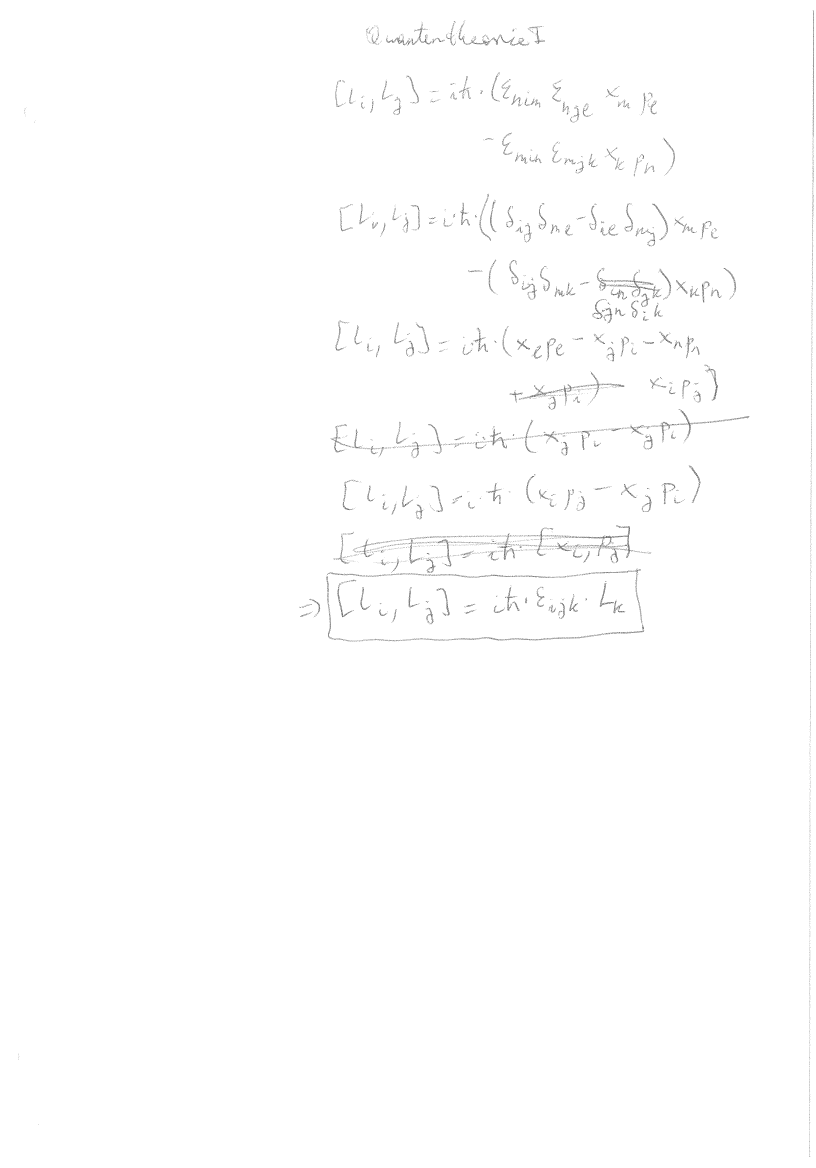 Quantentheorie I
[L_i, L_j] = iħ·(ε_nim ε_nje x_m p_e
- ε_min ε_mjk x_k p_n)
[L_i, L_j] = i·ħ·((δ_ij δ_me - δ_ie δ_mj) x_m p_e
-(δ_ij δ_nk - δ_in δ_jk) x_k p_n)
δ_jn δ_ik
[L_i, L_j] = iħ·(x_e p_e - x_j p_i - x_n p_n
+ x_j p_i) x_i p_j)
[L_i, L_j] = iħ·(x_j p_i - x_j p_i)
[L_i, L_j] = iħ·(x_i p_j - x_j p_i)
[L_i, L_j] = iħ·[x_i, p_j]
⇒ [L_i, L_j] = iħ·ε_ijk·L_k